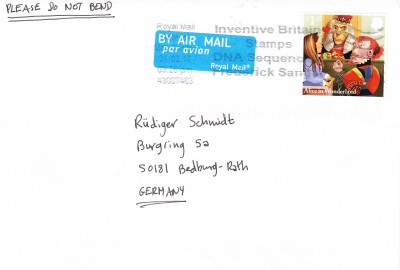 PLEASE DO NOT BEND
Royal Mail
BY AIR MAIL
par avion
Royal Mail®
Inventive Britain
Stamps
DNA Sequenc
Frederick San
Alice in Wonderland
Rüdiger Schmidt
Burgring 5a
50181 Bedburg-Rath
GERMANY